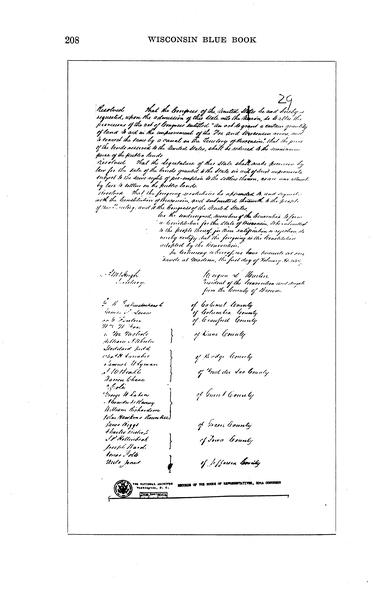 208 WISCONSIN BLUE BOOK
29
Resolved That the Congress of the United States be and hereby is
requested, upon the admission of this State into the Union, so to alter the
provisions of the act of Congress entitled "An act to grant a certain quantity
of land to aid in the improvement of the Fox and Wisconsin rivers, and
to connect the same by a canal in the Territory of Wisconsin" that the price
of the lands reserved to the United States, shall be reduced to the minimum
price of the public lands
Resolved That the legislature of this State shall make provision by
law for the sale of the lands granted to the State in aid of said improvements
subject to the same rights of pre-emption to the settlers thereon, as are now allowed
by law to settlers on the public lands
Resolved That the foregoing resolutions be appended to and signed
with the Constitution of Wisconsin, and submitted therewith to the people
of this Territory, and to the Congress of the United States
We the undersigned, members of the Convention to form
a Constitution for the State of Wisconsin, to be submitted
to the people thereof for their ratification or rejection do
hereby certify that the foregoing is the Constitution
adopted by the Convention.
In testimony whereof we have hereunto set our
hands at Madison, the first day of February
McHugh Morgan L. Martin
Secretary President of the Convention and delegate
from the County of Brown
of Calumet County
of Columbia County
of Crawford County
of Dane County
William A Wheeler
Stoddard Judd
of Dodge County
Samuel W Lyman
Warren Chase of Fond du Lac County
George W Lakin of Grant County
Alexander Ramsey
William Richardson
John Hawkins Rountree
James Biggs of Green County
of Iowa County
Joseph Ward
Milo Jones of Jefferson County
THE NATIONAL ARCHIVES
Washington, D. C.
RECORDS OF THE HOUSE OF REPRESENTATIVES, 30th CONGRESS